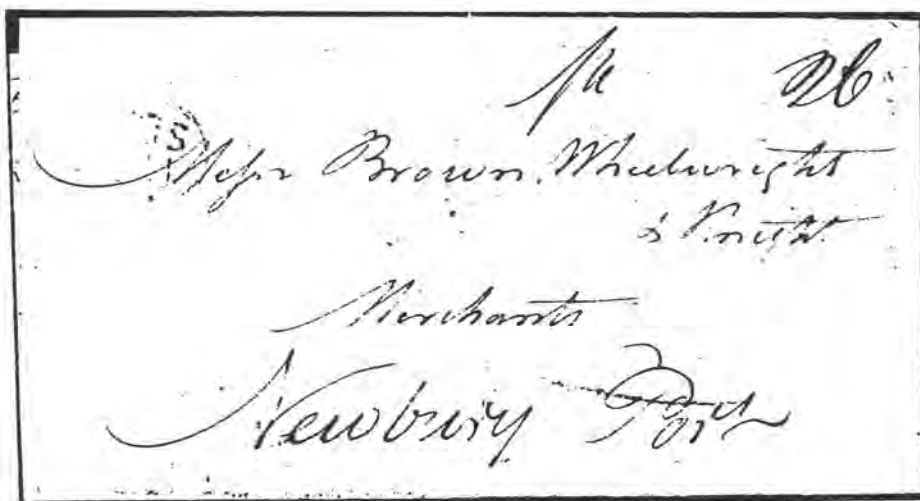 26
S
Messrs Brown, Wheelwright
& Knight
Merchants
Newbury Port